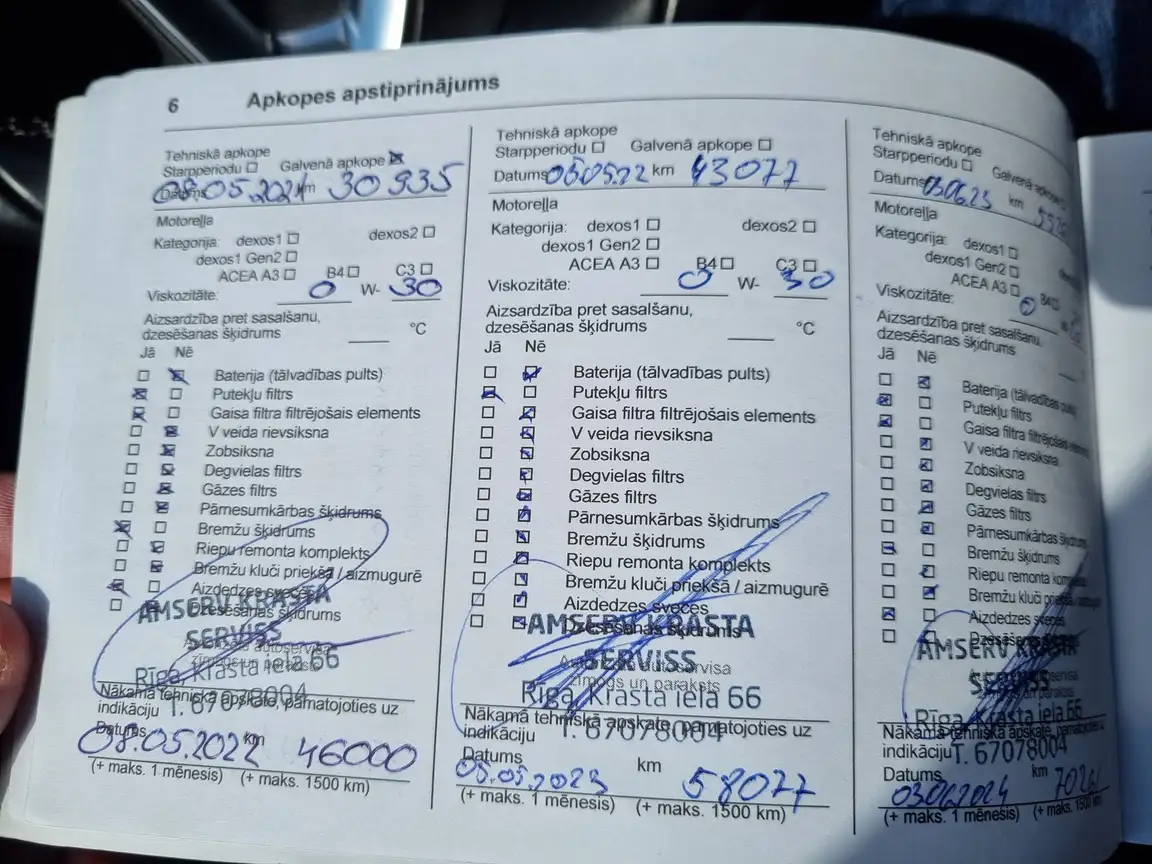 6 Apkopes apstiprinājums
Tehniskā apkope
Starpperiodu Galvenā apkope
Datums 08.05.2021 km 30 935
Motoreļļa
Kategorija: dexos1 dexos2
dexos1 Gen2
ACEA A3 B4 C3
Viskozitāte: 0 W- 30
Aizsardzība pret sasalšanu,
dzesēšanas šķidrums °C
Jā Nē
Baterija (tālvadības pults)
Putekļu filtrs
Gaisa filtra filtrējošais elements
V veida rievsiksna
Zobsiksna
Degvielas filtrs
Gāzes filtrs
Pārnesumkārbas šķidrums
Bremžu šķidrums
Riepu remonta komplekts
Bremžu kluči priekšā / aizmugurē
Aizdedzes sveces
Dzesēšanas šķidrums
AMSERV KRASTA
SERVISS
Autorizētā autoservisa
zīmogs un paraksts
Rīga, Krasta iela 66
T. 67078004
Nākamā tehniskā apskate, pamatojoties uz
indikāciju
Datums km
08.05.2022 46000
(+ maks. 1 mēnesis) (+ maks. 1500 km)
Tehniskā apkope
Starpperiodu Galvenā apkope
Datums 05.05.22 km 43077
Motoreļļa
Kategorija: dexos1 dexos2
dexos1 Gen2
ACEA A3 B4 C3
Viskozitāte: 0 W- 30
Aizsardzība pret sasalšanu,
dzesēšanas šķidrums °C
Jā Nē
Baterija (tālvadības pults)
Putekļu filtrs
Gaisa filtra filtrējošais elements
V veida rievsiksna
Zobsiksna
Degvielas filtrs
Gāzes filtrs
Pārnesumkārbas šķidrums
Bremžu šķidrums
Riepu remonta komplekts
Bremžu kluči priekšā / aizmugurē
Aizdedzes sveces
Dzesēšanas šķidrums
AMSERV KRASTA
SERVISS
autoservisa
zīmogs un paraksts
Rīga, Krasta iela 66
T. 67078004
Nākamā tehniskā apskate, pamatojoties uz
indikāciju
Datums km
05.05.2023 58077
(+ maks. 1 mēnesis) (+ maks. 1500 km)
Tehniskā apkope
Starpperiodu Galvenā apkope
Datums 03.06.23 km
Motoreļļa
Kategorija: dexos1
dexos1 Gen2
ACEA A3 B4
Viskozitāte: 0 W-
Aizsardzība pret sasalšanu,
dzesēšanas šķidrums
Jā Nē
Baterija (tālvadības pults)
Putekļu filtrs
Gaisa filtra filtrējošais
V veida rievsiksna
Zobsiksna
Degvielas filtrs
Gāzes filtrs
Pārnesumkārbas šķidrums
Bremžu šķidrums
Riepu remonta
Bremžu kluči priekšā
Aizdedzes sveces
AMSERV KRASTA
SERVISS
Rīga, Krasta iela 66
T. 67078004
Nākamā tehniskā apskate, pamatojoties uz
indikāciju
Datums km
03.06.2024
(+ maks. 1 mēnesis) (+ maks. 1500 km)